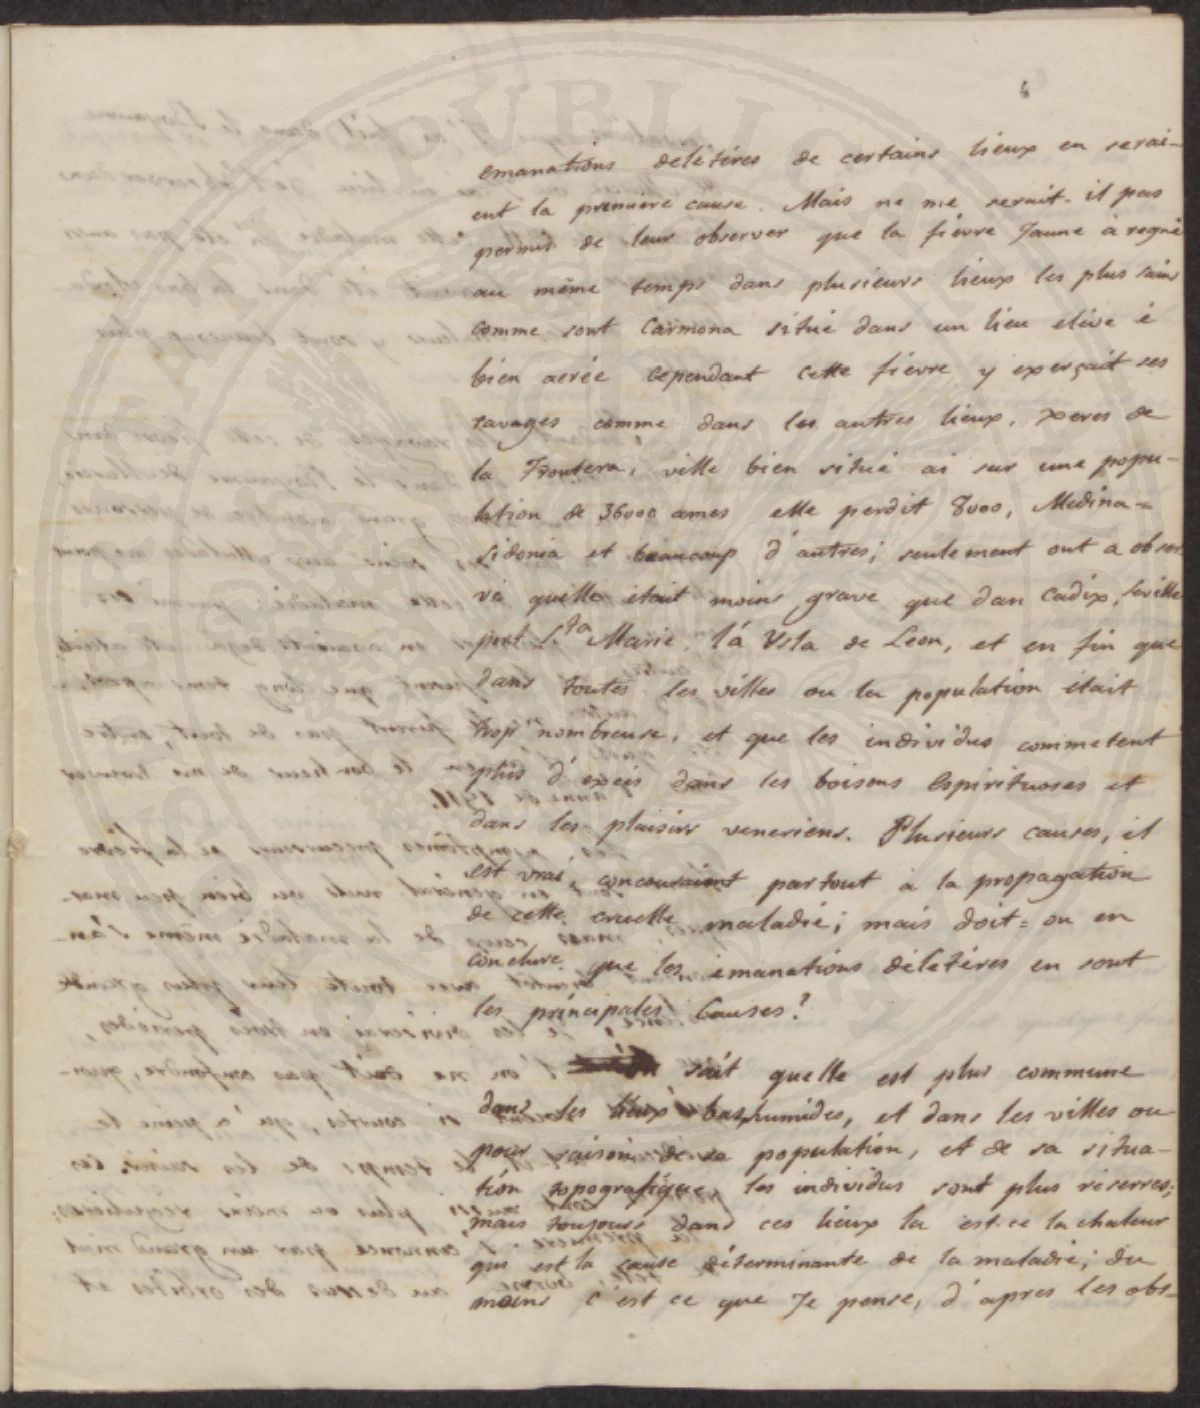 4
emanations delétéres de certains lieux en serai-
ent la premiere cause. Mais ne me serait-il pas
permis de leur observer que la fiévre Jaune à regné
au même temps dans plusieurs lieux les plus sains
comme sont Carmona situé dans un lieu elévé é
bien aerée cependant cette fiévre y experçait ses
ravages comme dans les autres lieux, Xeres de
la Frontera, ville bien situé ai sur une popu-
lation de 36000 ames elle perdit 8000, Medina=
Sidonia et beaucoup d'autres; seulement ont a obser
vé quelle était moins grave que dan Cadix, Seville
port S.ta Marie, lá Ysla de Leon, et en fin que
dans toutes les villes ou la population était
trop nombreuse, et que les individus commetent
plus d'exéés dans les boisons Espirituoses et
dans les plaisirs veneriens. Plusieurs causes, il
est vrai, concouraient partout à la propagation
de cette cruelle maladie; mais doit=on en
conclure que les émanations délétéres en sont
les principales Causes?
sait quelle est plus commune
dans les lieux bas, humides, et dans les villes ou
pour raison de sa population, et de sa situa-
tión topografique les individus sont plus réserres;
mais toujours dans ces lieux la est-ce la chaleur
qui est la cause déterminante de la maladie; du
moins c'est ce que Je pense, d'apres les obs-